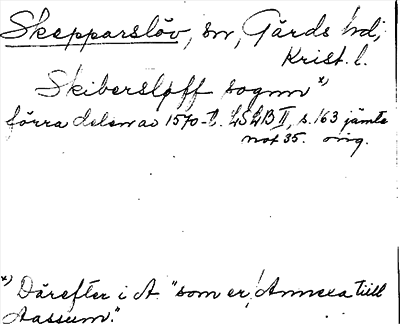 Skepparslöv, sn, Gärds hd,
Krist. l.
Skibersløff sognn *)
förra delen av 1570-t. LSLB II, s. 163 jämte
not 35. orig.
*) Därefter i A "som er Annexa till
Aassum."